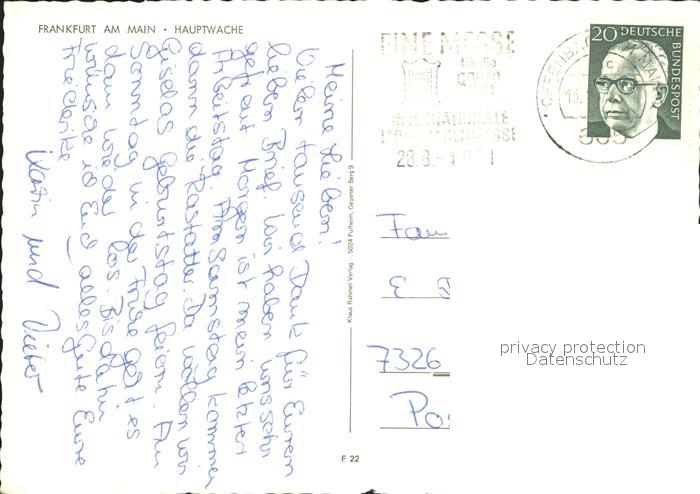 FRANKFURT AM MAIN · HAUPTWACHE
Meine Lieben!
Vielen tausend Dank für Euren
lieben Brief. Wir haben uns sehr
gefreut. Morgen ist mein letzter
Arbeitstag. Am Samstag kommen
dann die Rastatter. Da wollen wir
Giselas Geburtstag feiern. Am
Sonntag in der Frühe geht es
dann wieder los. Bis dahin
wünsche ich Euch alles Gute Eure
Friederike
und Dieter
Klaus Rahmel Verlag 5024 Pulheim, Geyener Berg 9
F 22
EINE MESSE
für die
ganze
INTERNATIONALE
28.8.-
OFFENBACH
20 DEUTSCHE
BUNDESPOST
605
Fam
E
7326
Po
privacy protection
Datenschutz